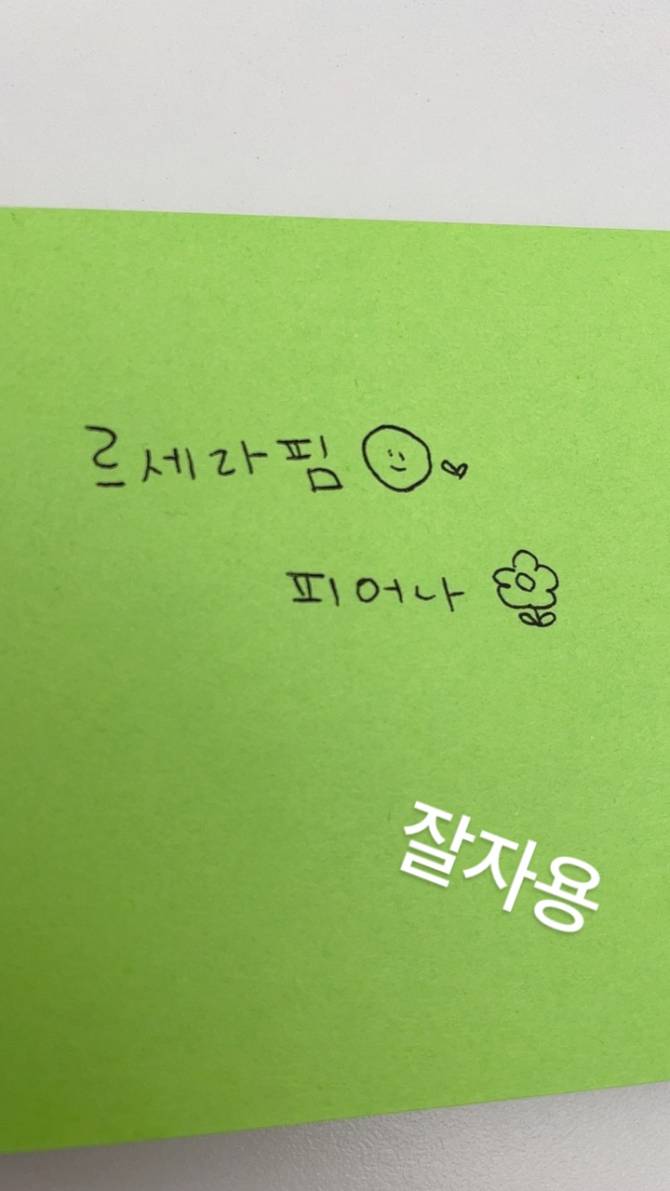 르세라핌
피어나
잘자용